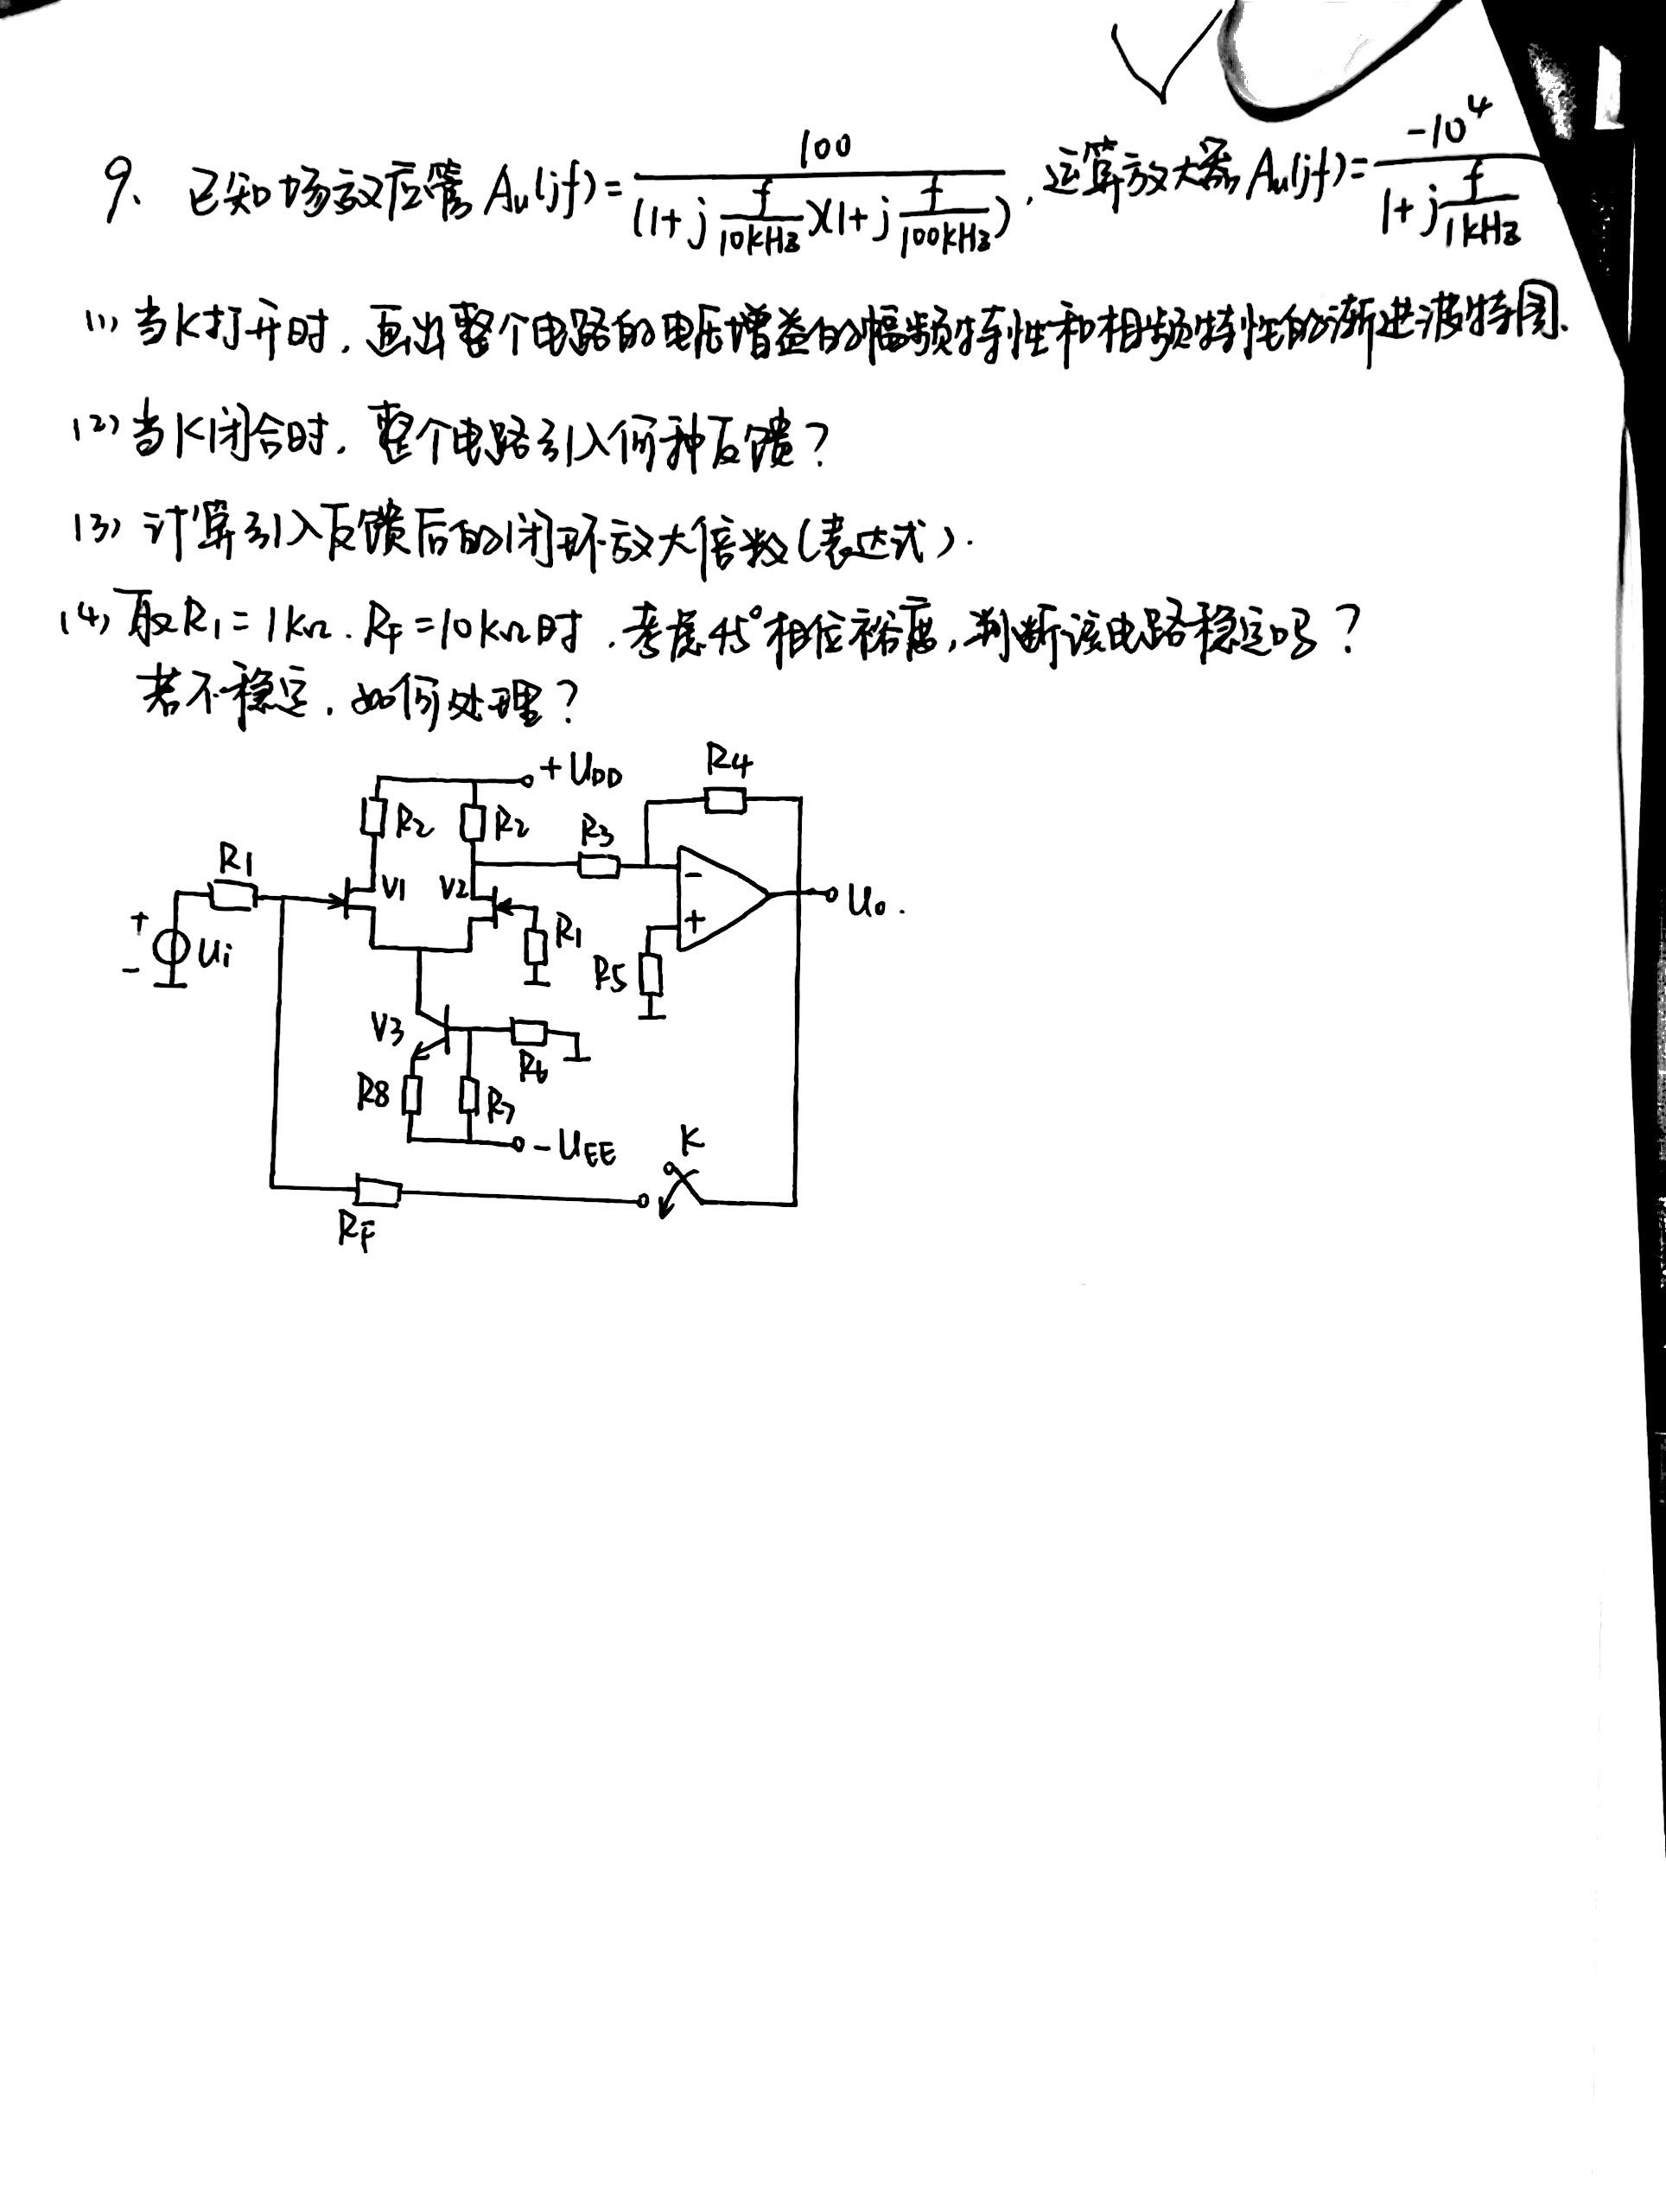 9、已知场效应管 Au(jf)=100/((1+j f/10kHz)(1+j f/100kHz)),运算放大器 Au(jf)=-10⁴/(1+j f/1kHz)
(1) 当K打开时,画出整个电路的电压增益的幅频特性和相频特性的渐进波特图.
(2) 当K闭合时,整个电路引入何种反馈?
(3) 计算引入反馈后的闭环放大倍数(表达式).
(4) 取R1=1kΩ.RF=10kΩ时,考虑45°相位裕度,判断该电路稳定吗?
若不稳定,如何处理?
+UDD
R4
R2
R2
R3
R1
V1
V2
-
+
Uo.
+
-
Ui
R1
R5
V3
R6
R8
R7
-UEE
K
RF